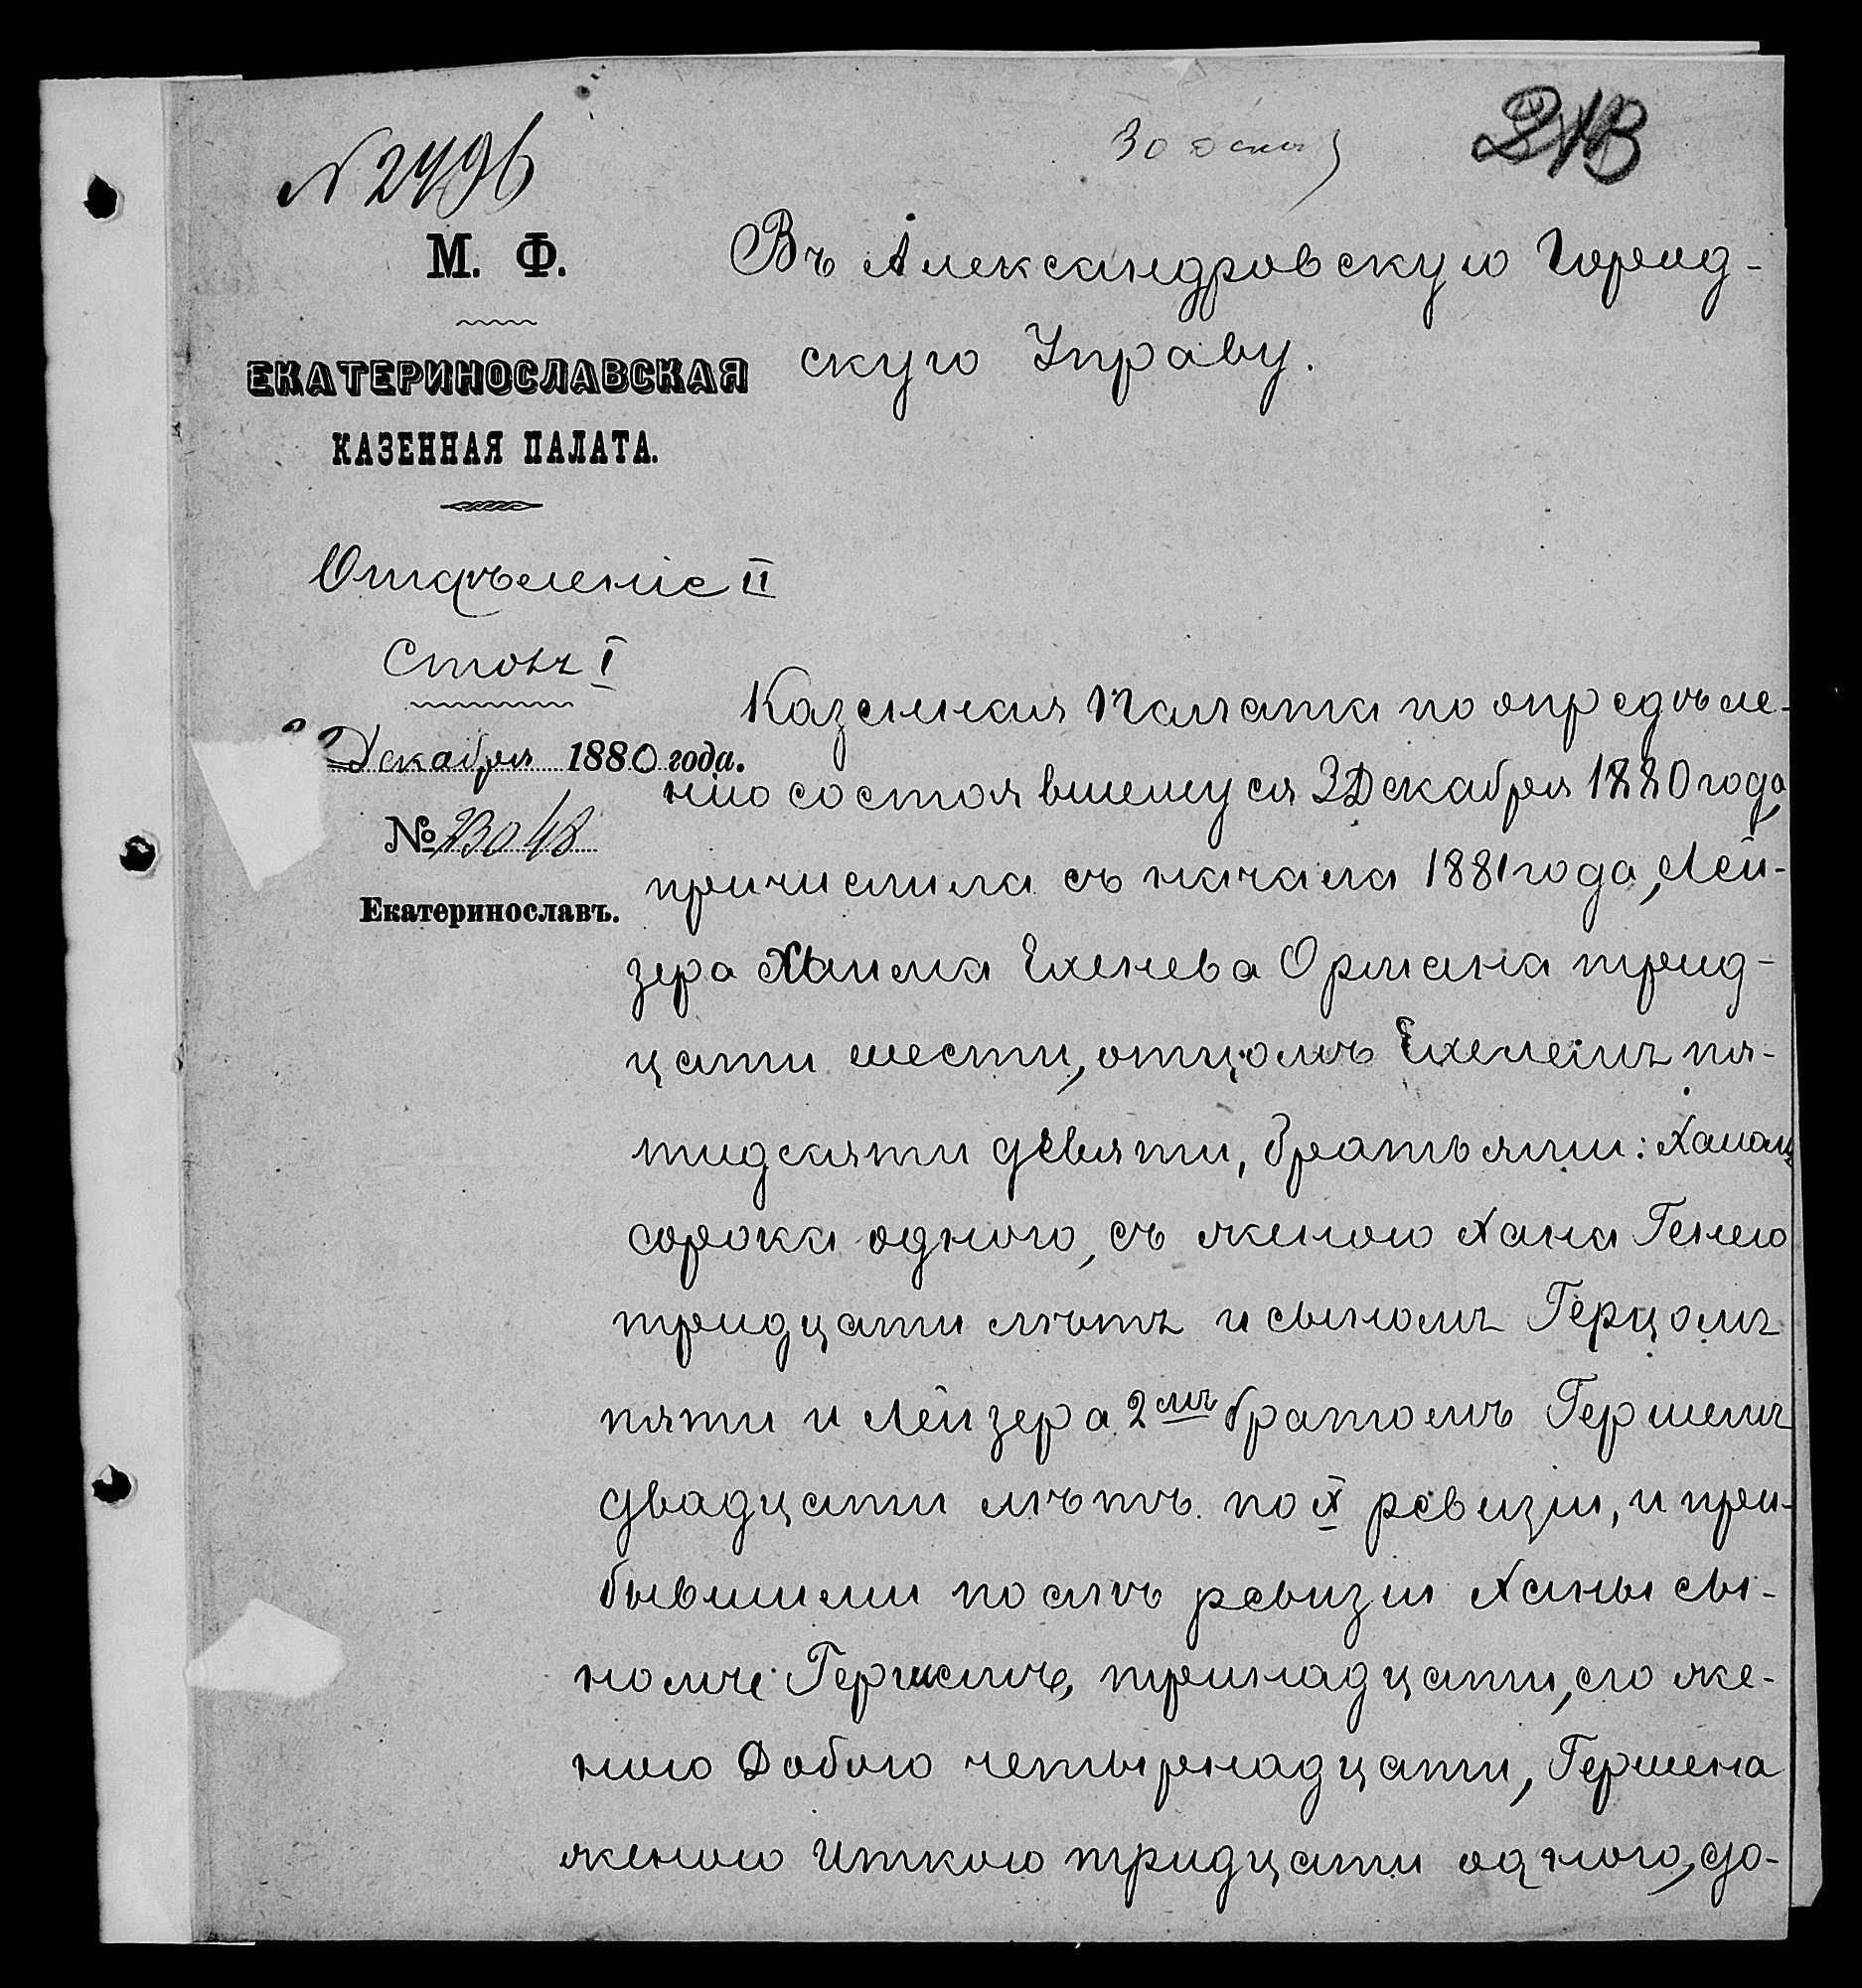 № 2496
М. Ф.
Въ Александровскую Город-
скую Управу.
ЕКАТЕРИНОСЛАВСКАЯ
КАЗЕННАЯ ПАЛАТА.
Отдѣленіе II
Столъ I
Декабря 1880 года.
№ 23048
Екатеринославъ.
Казенная Палата по опредѣле-
нію состоявшемуся 3 Декабря 1880 года,
причислила съ начала 1881 года, Лей-
зера Хаима Ехенева Ормана трид-
цати шести, отцомъ Ехенемъ пя-
тидесяти девяти, братьями:
сорока одного, съ женою Хана Генею
тридцати лѣтъ и сыномъ Герцомъ
пяти и Лейзера 2мъ братомъ Гершемъ
двадцати лѣтъ по X ревизіи, и при-
бывшими послѣ ревизіи Ханы сы-
номъ Гершемъ, тринадцати, его же-
ною Добою четырнадцати, Гершена
женою Иткою тридцати одного, до-